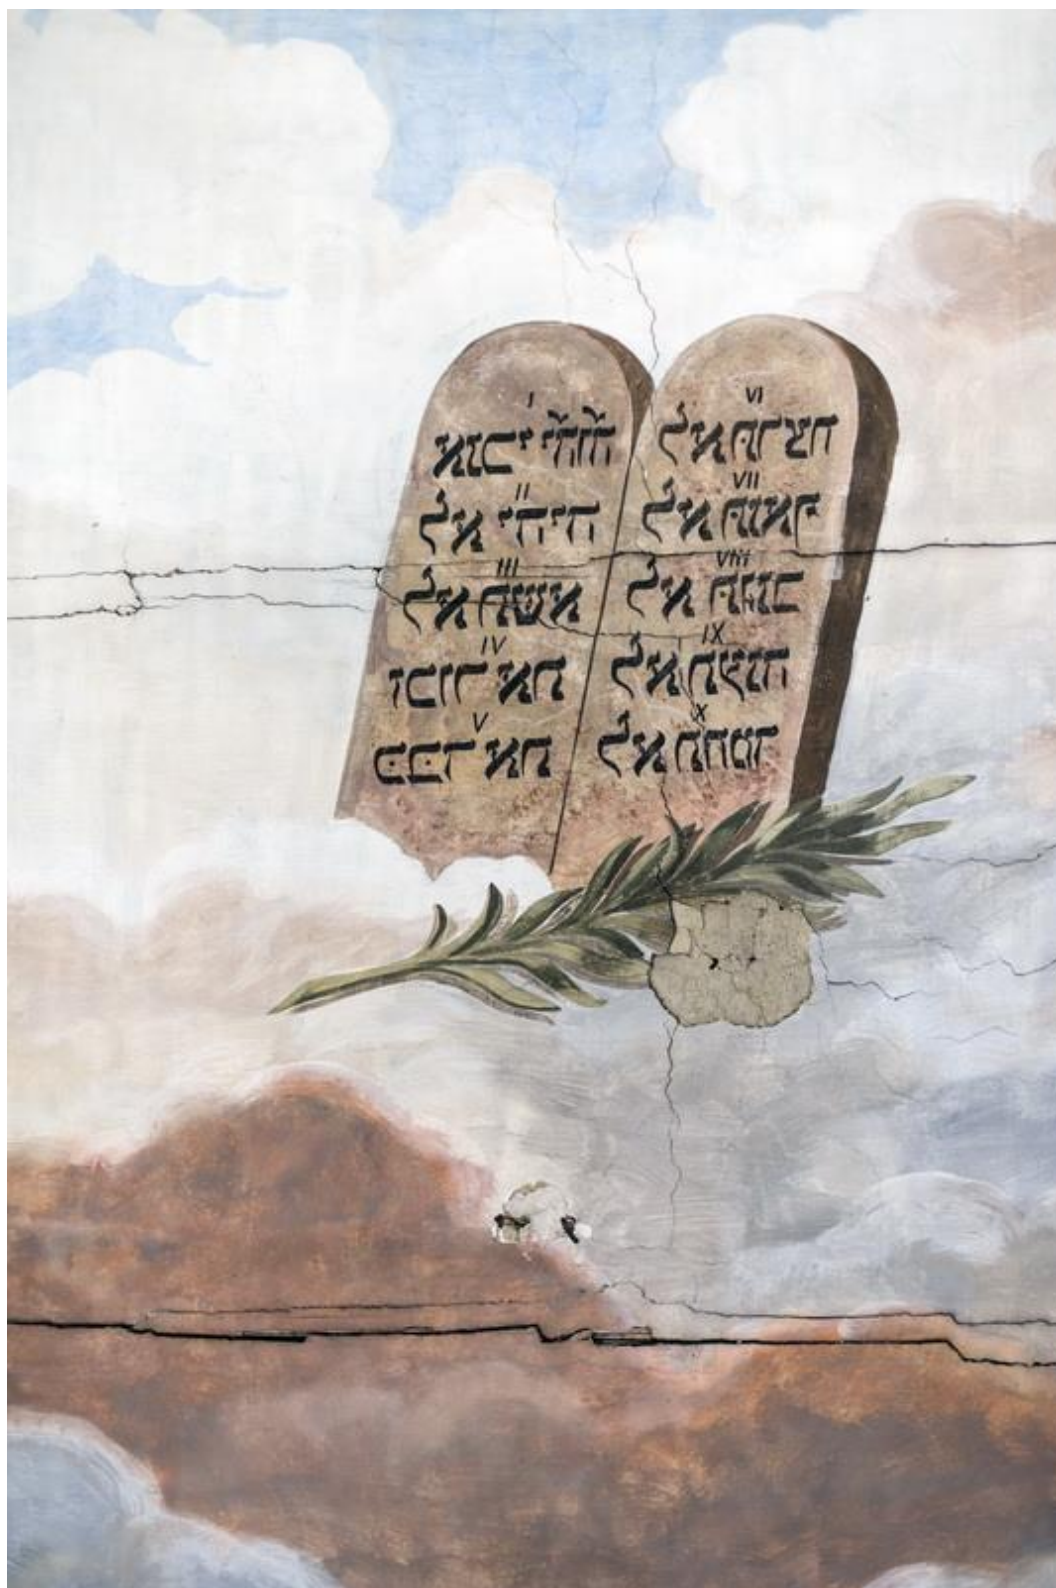 I
אנכי
II
לא יהיה
III
לא תשא
IV
זכור את
V
כבד את
VI
לא תרצח
VII
לא תנאף
VIII
לא תגנב
IX
לא
X
לא תחמד